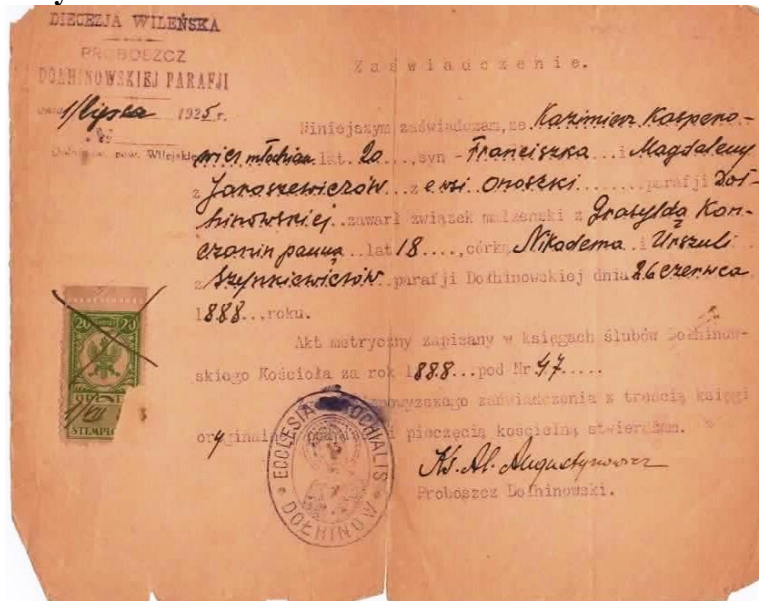 DIECEZJA WILEŃSKA
PROBOSZCZ
DOŁHINOWSKIEJ PARAFJI
dnia 1/lipca 1925 r.
pow. Wilejski
Zaświadczenie.
Niniejszym zaświadczam, że Kazimierz Kaspero-
wicz młodzian lat 20, syn Franciszka i Magdaleny
z Jaroszewiczów z wsi Onoszki parafji Doł-
hinowskiej zawarł związek małżeński z Grasyldą Kon-
czanin panną lat 18, córką Nikodema i Urszuli
z Szynkiewiczów parafji Dołhinowskiej dnia 26 czerwca
1888 roku.
Akt metryczny zapisany w księgach ślubów Dołhinow-
skiego Kościoła za rok 1888 pod Nr 47
powyższego zaświadczenia z treścią księgi
oryginalnej i pieczęcią kościelną stwierdzam.
Ks. Al. Augustynowicz
Proboszcz Dołhinowski.
20 20
STEMPLO
ECCLESIA PAROCHIALIS
DOŁHINÓW